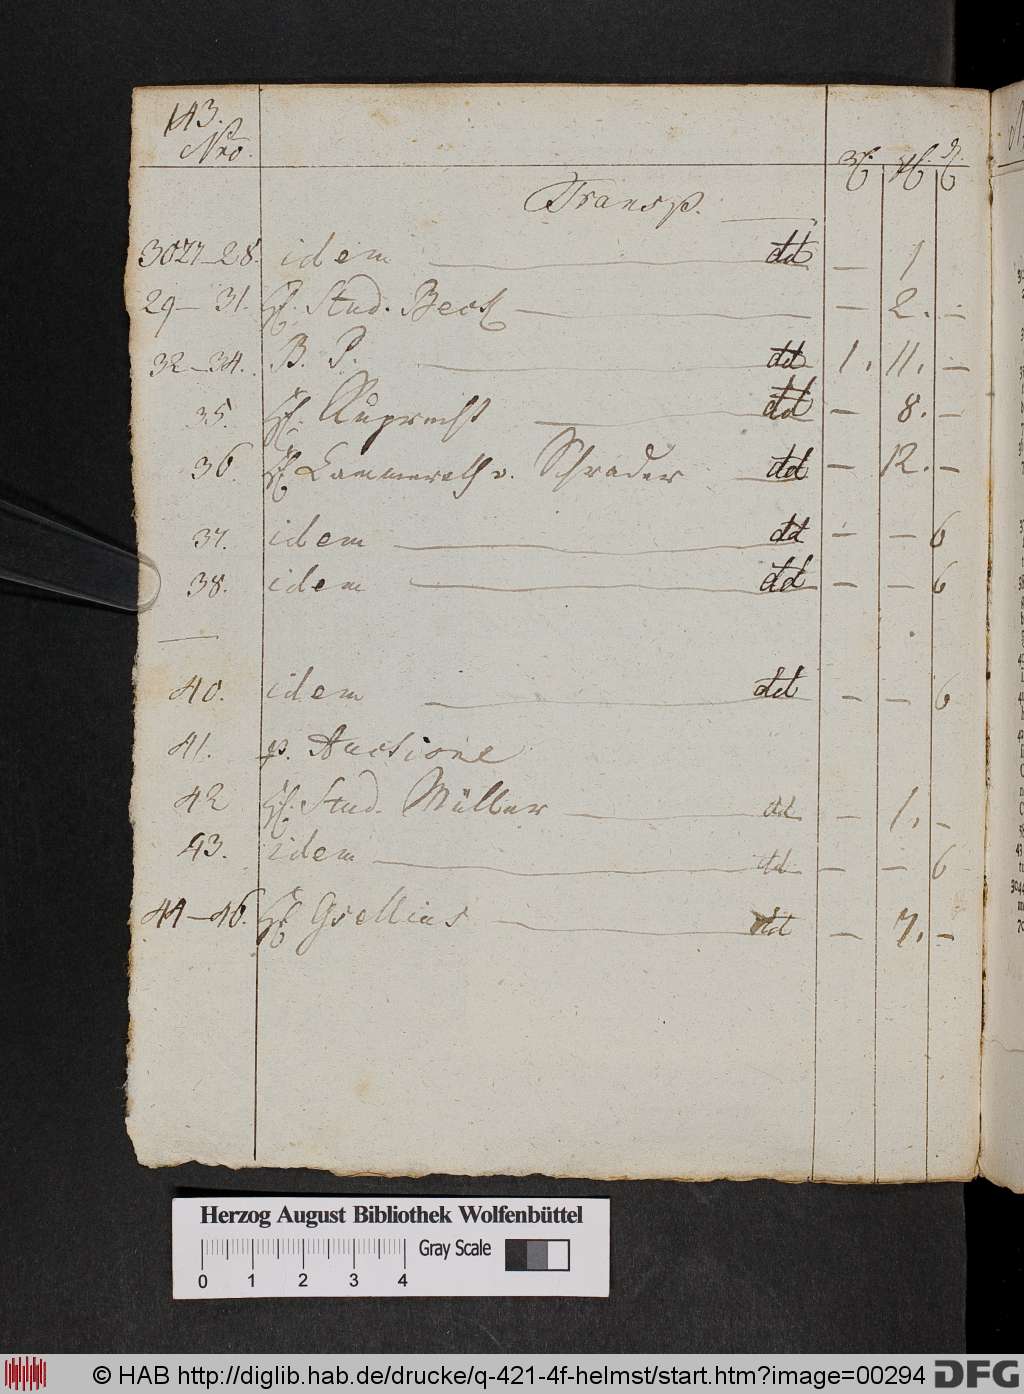 143.
Nro.
Transp.
3027–28. idem — dd — 1
29–31. H. Stud. Beck — — 2. –
32–34. B. P. — dd 1. 11. –
35. H. Ruprecht — dd — 8. –
36. H. Cammerath v. Schrader — dd — 12. –
37. idem — dd — — 6
38. idem — dd — — 6
—
40. idem — dd — — 6
41. p. Auctione
42 H. Stud. Müller — dd — 1. –
43. idem — dd — — 6
44–46. H. Gsellius — dd — 7. –
Herzog August Bibliothek Wolfenbüttel
Gray Scale
0 1 2 3 4
© HAB http://diglib.hab.de/drucke/q-421-4f-helmst/start.htm?image=00294
DFG